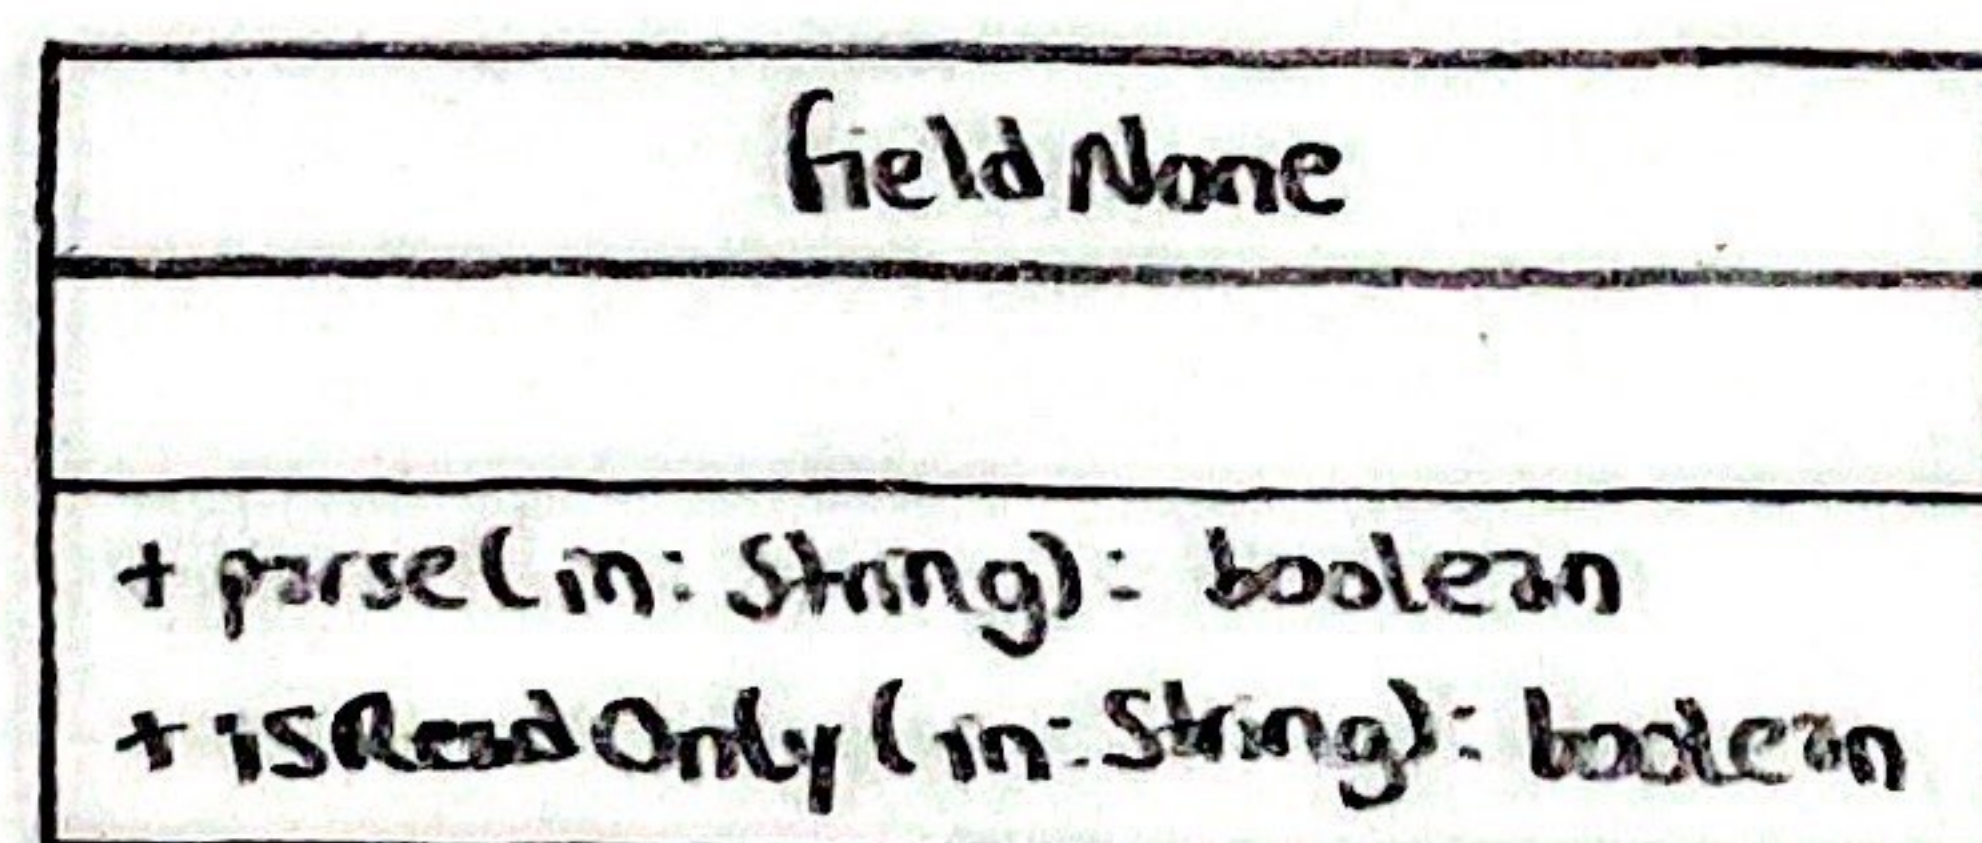 FieldName
+ parse(in: String): boolean
+ isReadOnly(in: String): boolean